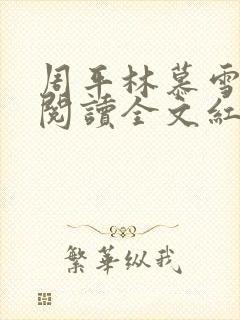 周平林慕雪
閱讀全文紅
繁華纵我